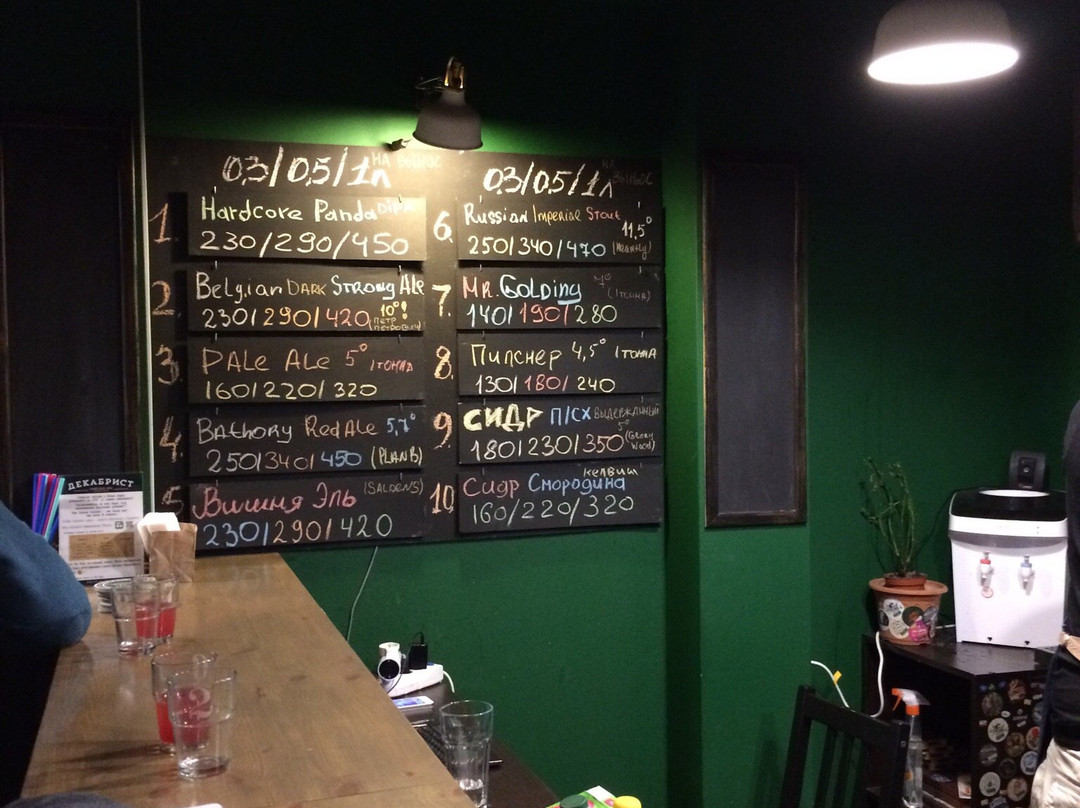 0,3/0,5/1л НА ВЫНОС
1. Hardcore Panda
230/290/450
2. Belgian Dark Strong Ale
230/290/420 10°! (ПЕТР ПЕТРОВИЧ)
3. PALe ALe 5° 1 ТОННА
160/220/320
4. BAthory Red Ale 5,7°
250/340/450 (PLAN B)
5. Вишня Эль (SALDENS)
230/290/420
0,3/0,5/1л НА ВЫНОС
6. Russian Imperial Stout
250/340/470 11,5°
7. MR. Golding 7° (1 ТОННА)
140/190/280
8. Пилснер 4,5° 1 ТОННА
130/180/240
9. СИДР П/СХ ВЫДЕРЖАННЫЙ
180/230/350 5°
10. Сидр Смородина келвиш
160/220/320
ДЕКАБРИСТ
2